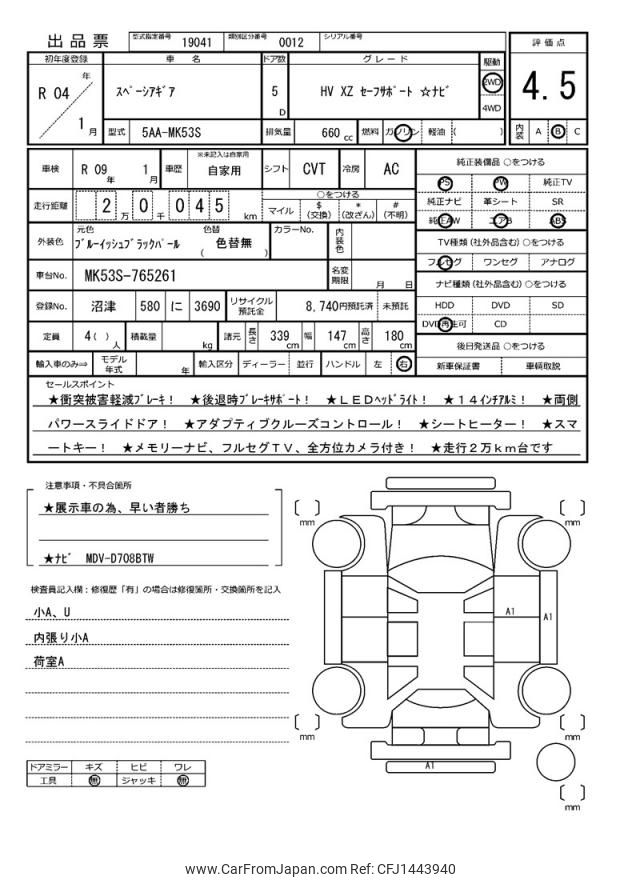 出品票 型式指定番号 19041 類別区分番号 0012 シリアル番号
初年度登録 車名 ドア数 グレード 駆動 評価点
R 04 年 1 月 スペーシアギア 5 D HV XZ セーフサポート ☆ナビ 2WD 4WD 4.5
型式 5AA-MK53S 排気量 660 cc 燃料 ガソリン 軽油 ( ) 内装 A B C
車検 R 09 年 1 月 車歴 ※未記入は自家用 自家用 シフト CVT 冷房 AC
純正装備品 ○をつける
PS PW 純正TV
純正ナビ 革シート SR
純正AW エアB ABS
走行距離 2 万 0 千 0 4 5 km ○をつける マイル $(交換) *(改ざん) #(不明)
TV種類(社外品含む)○をつける
フルセグ ワンセグ アナログ
外装色 元色 ブルーイッシュブラックパール 色替 ( 色替無 ) カラーNo. 内装色
車台No. MK53S-765261 名変期限 月 日
ナビ種類(社外品含む)○をつける
HDD DVD SD
DVD再生可 CD
登録No. 沼津 580 に 3690 リサイクル預託金 8,740円預託済 未預託
定員 4( )人 積載量 kg 諸元 長さ 339 cm 幅 147 cm 高さ 180 cm
後日発送品 ○をつける
新車保証書 車輌取説
輸入車のみ⇒ モデル年式 年 輸入区分 ディーラー 並行 ハンドル 左 右
セールスポイント
★衝突被害軽減ブレーキ! ★後退時ブレーキサポート! ★LEDヘッドライト! ★14インチアルミ! ★両側
パワースライドドア! ★アダプティブクルーズコントロール! ★シートヒーター! ★スマ
ートキー! ★メモリーナビ、フルセグTV、全方位カメラ付き! ★走行2万km台です
注意事項・不具合箇所
★展示車の為、早い者勝ち
★ナビ MDV-D708BTW
検査員記入欄:修復歴「有」の場合は修復箇所・交換箇所を記入
小A、U
内張り小A
荷室A
ドアミラー キズ ヒビ ワレ
工具 無 ジャッキ 無
mm
mm
A1
A1
mm
mm
A1
mm
www.CarFromJapan.com Ref: CFJ1443940